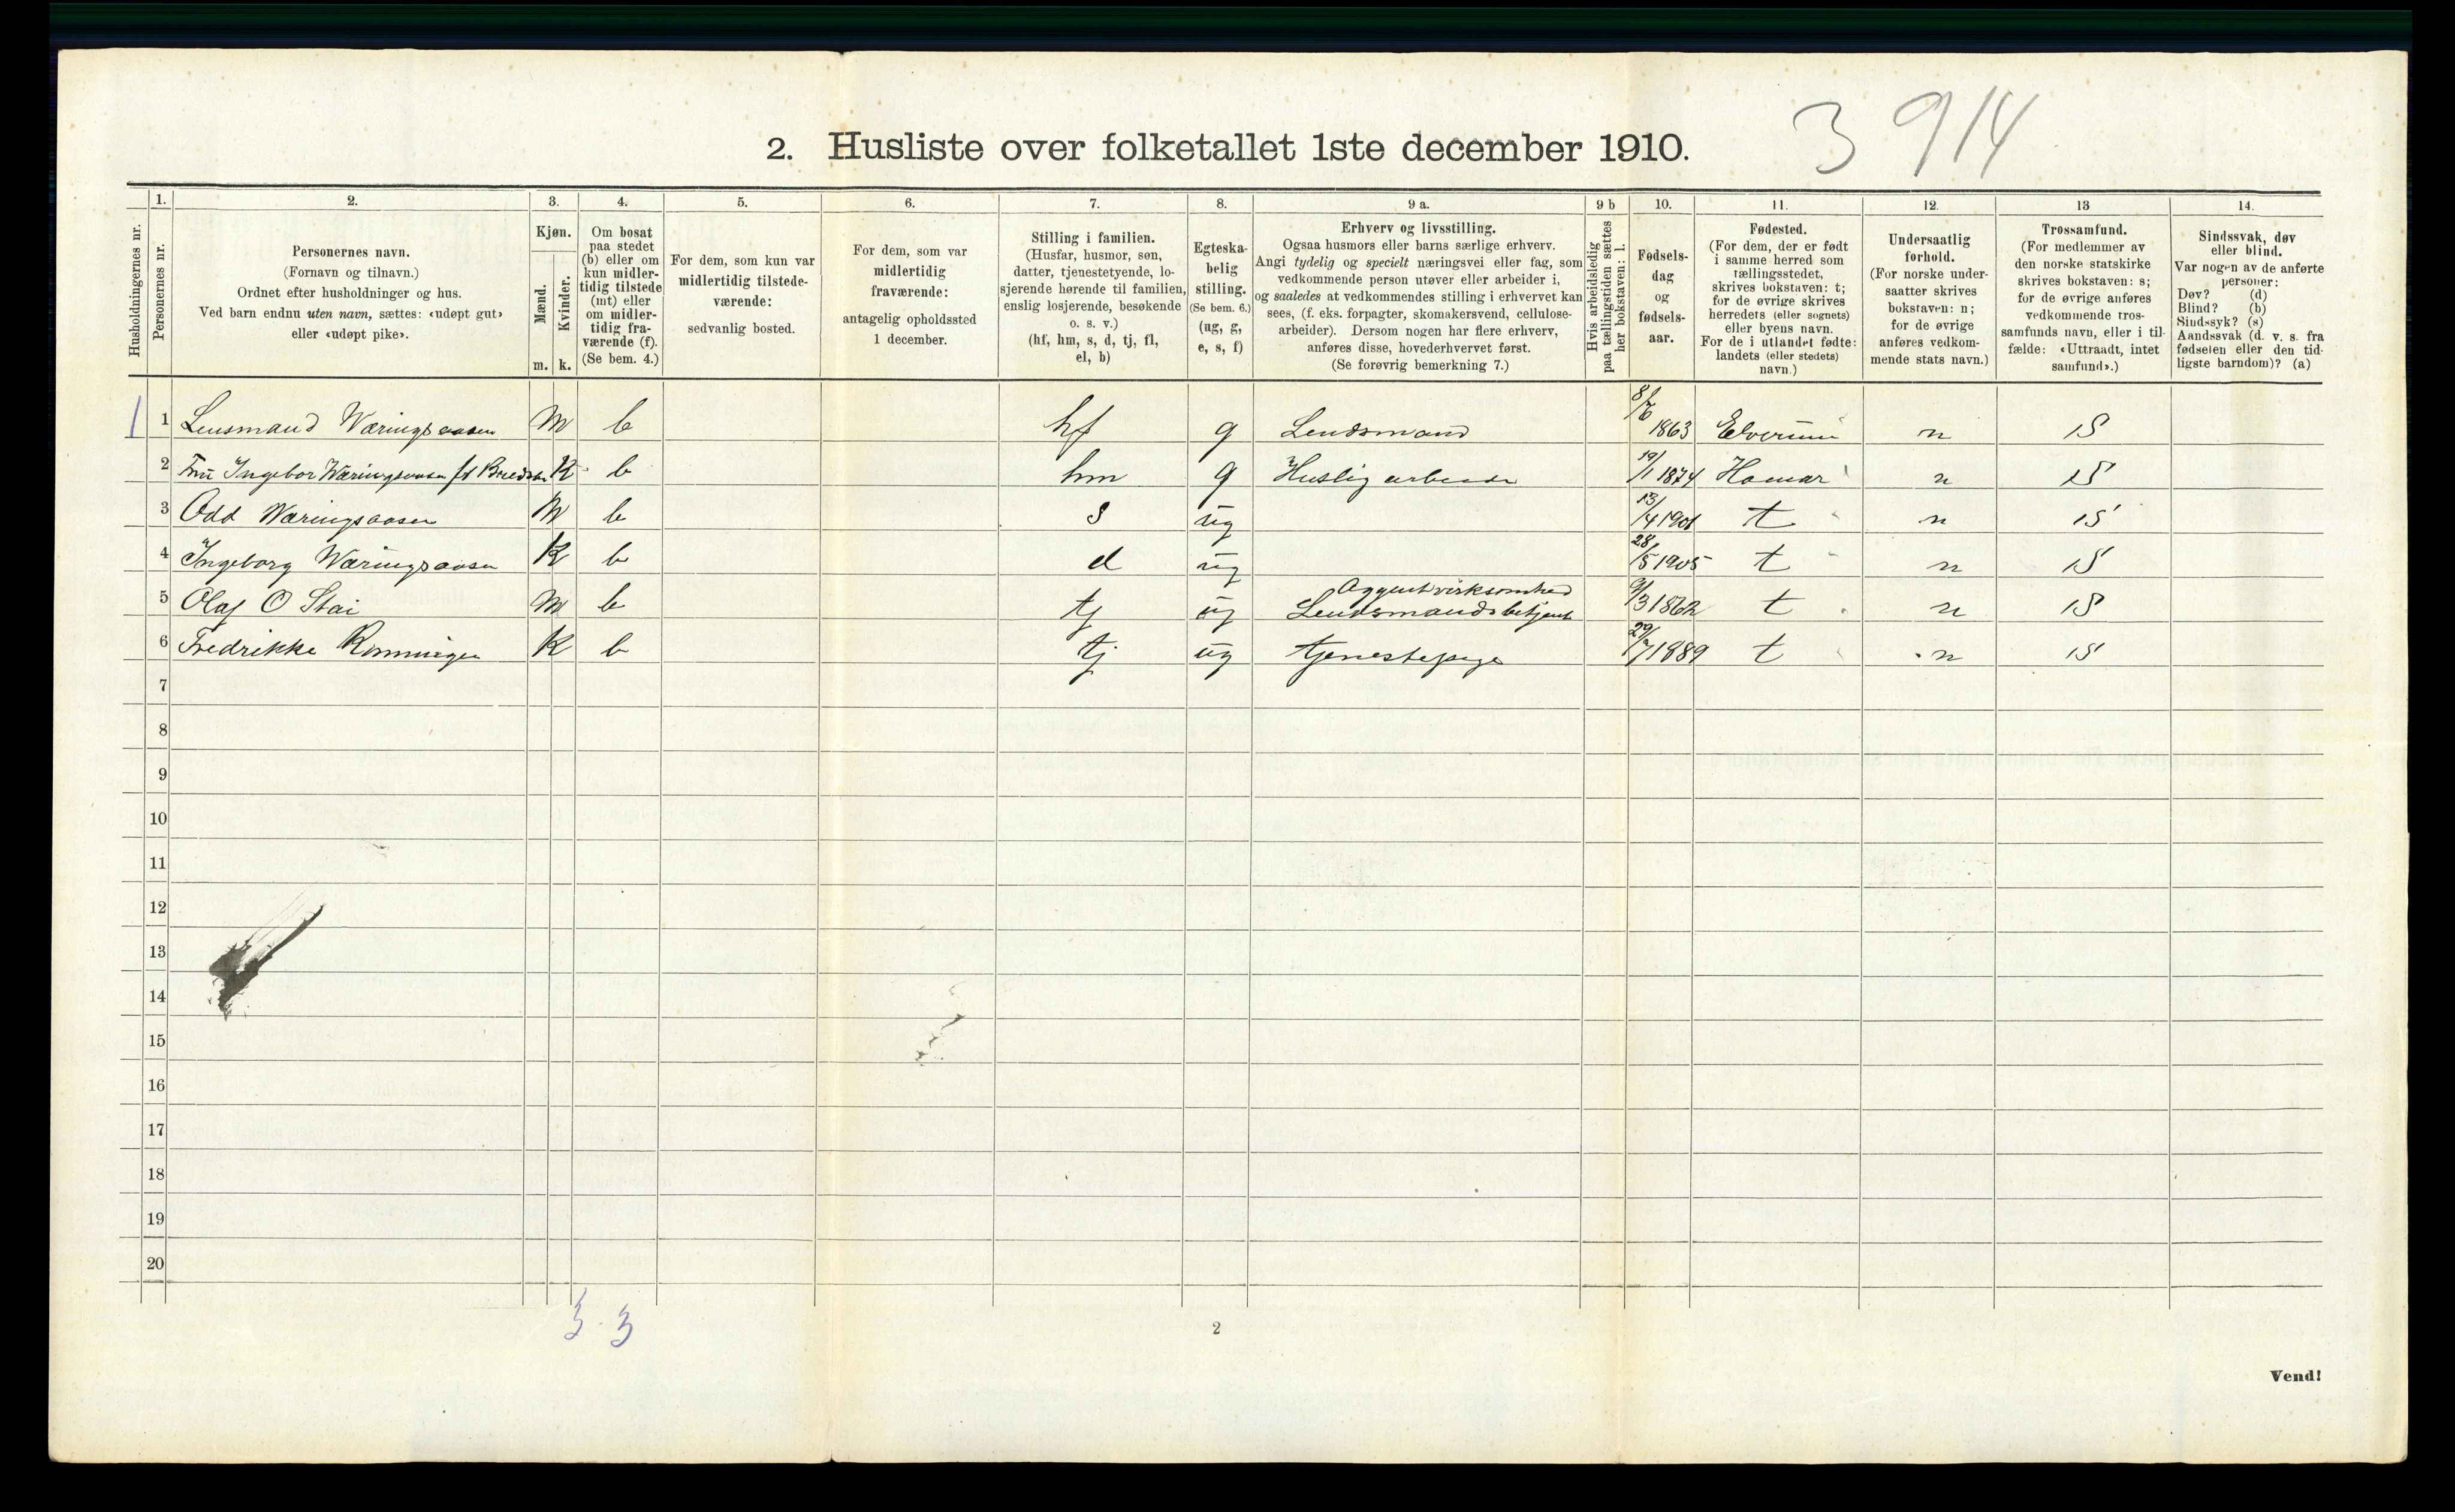 3 914
2. Husliste over folketallet 1ste december 1910.
Husholdningernes nr.
1.
Personernes nr.
2.
Personernes navn.
(Fornavn og tilnavn.)
Ordnet efter husholdninger og hus.
Ved barn endnu uten navn, sættes: «udøpt gut»
eller «udøpt pike».
3.
Kjøn.
Mænd.
Kvinder.
m. k.
4.
Om bosat
paa stedet
(b) eller om
kun midler-
tidig tilstede
(mt) eller
om midler-
tidig fra-
værende (f).
(Se bem. 4.)
5.
For dem, som kun var
midlertidig tilstede-
værende:
sedvanlig bosted.
6.
For dem, som var
midlertidig
fraværende:
antagelig opholdssted
1 december.
7.
Stilling i familien.
(Husfar, husmor, søn,
datter, tjenestetyende, lo-
sjerende hørende til familien,
enslig losjerende, besøkende
o. s. v.)
(hf, hm, s, d, tj, fl,
el, b)
8.
Egteska-
belig
stilling.
(Se bem. 6.)
(ug, g,
e, s, f)
9 a.
Erhverv og livsstilling.
Ogsaa husmors eller barns særlige erhverv.
Angi tydelig og specielt næringsvei eller fag, som
vedkommende person utøver eller arbeider i,
og saaledes at vedkommendes stilling i erhvervet kan
sees, (f. eks. forpagter, skomakersvend, cellulose-
arbeider). Dersom nogen har flere erhverv,
anføres disse, hovederhvervet først.
(Se forøvrig bemerkning 7.)
9 b
Hvis arbeidsledig
paa tællingstiden sættes
her bokstaven: l.
10.
Fødsels-
dag
og
fødsels-
aar.
11.
Fødested.
(For dem, der er født
i samme herred som
tællingsstedet,
skrives bokstaven: t;
for de øvrige skrives
herredets (eller sognets)
eller byens navn.
For de i utlandet fødte:
landets (eller stedets)
navn.)
12.
Undersaatlig
forhold.
(For norske under-
saatter skrives
bokstaven: n;
for de øvrige
anføres vedkom-
mende stats navn.)
13
Trossamfund.
(For medlemmer av
den norske statskirke
skrives bokstaven: s;
for de øvrige anføres
vedkommende tros-
samfunds navn, eller i til-
fælde: «Uttraadt, intet
samfund».)
14.
Sindssvak, døv
eller blind.
Var nogen av de anførte
personer:
Døv? (d)
Blind? (b)
Sindssyk? (s)
Aandssvak (d. v. s. fra
fødselen eller den tid-
ligste barndom)? (a)
1 1 Lensmand Wæringsaasen M b hf g Lendsmand 8/6 1863 Elverum n S
2 Fru Ingebor Wæringsaasen fd K b hm g Huslig arbeide 19/1 1874 Hamar n S
3 Odd Wæringsaasen M b s ug 13/4 1901 t n S
4 Ingeborg Wæringsaasen K b d ug 28/5 1905 t n S
5 Olaf O Stai M b tj ug Aggentvirksomhed Lendsmandsbetjent 9/3 1862 t n S
6 Fredrikke Rønningen K b tj ug tjenestepige 29/7 1889 t n S
7
8
9
10
11
12
13
14
15
16
17
18
19
20
3 · 3
2
Vend!